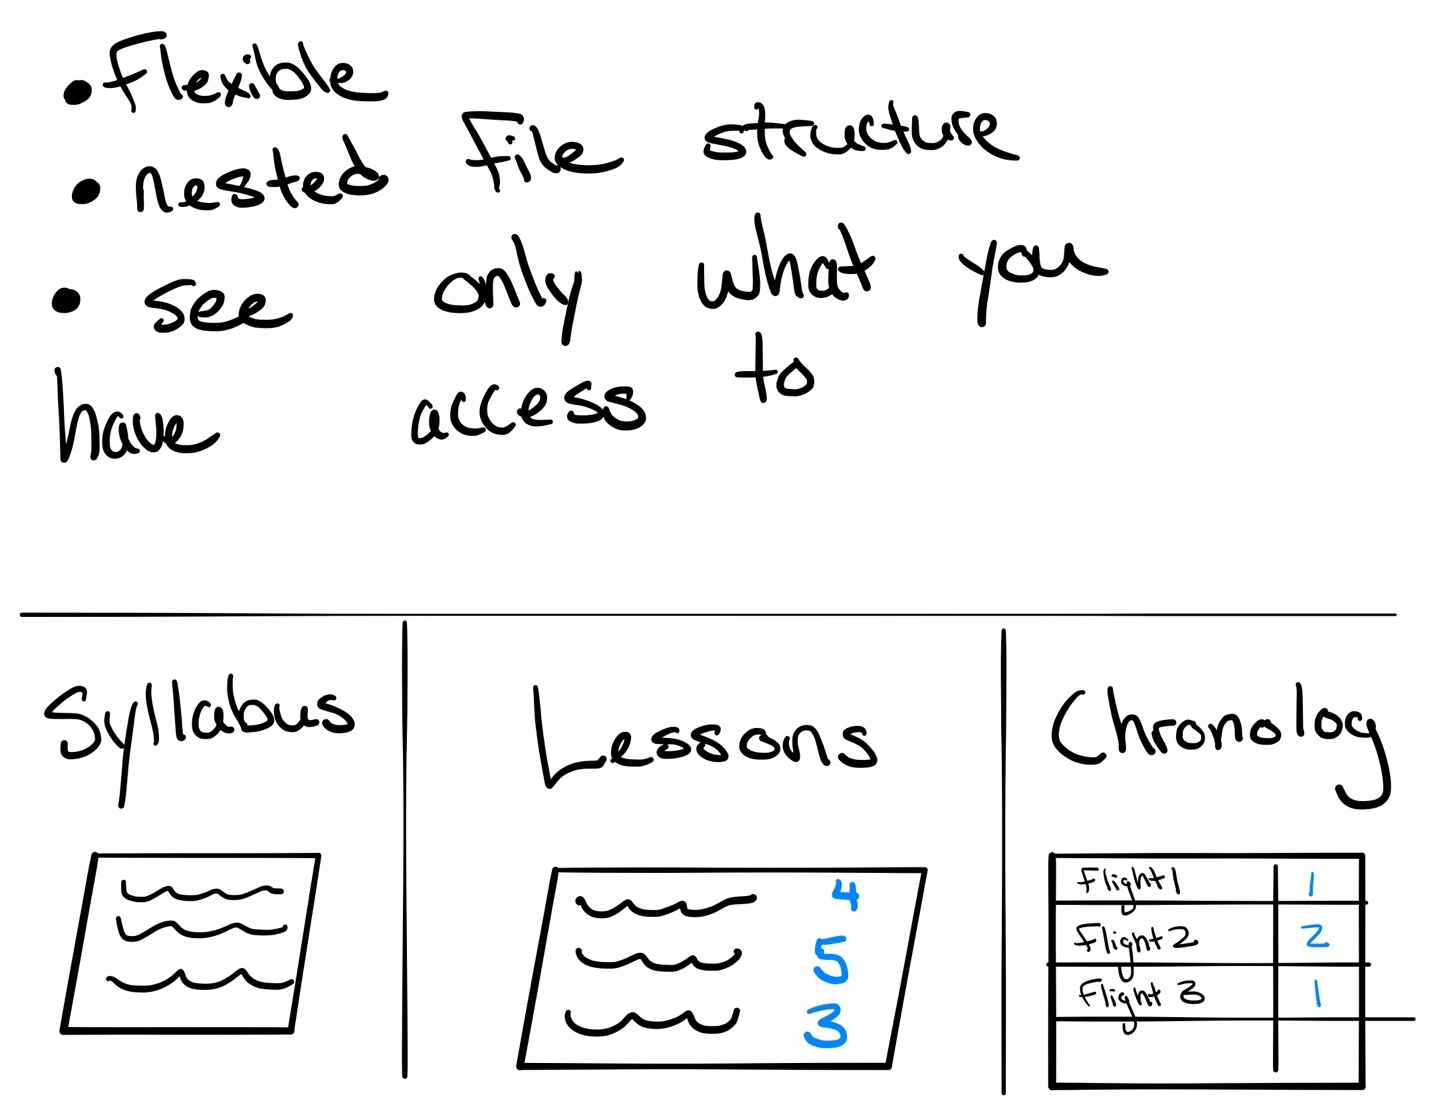 • Flexible
• nested file structure
• see only what you
have access to
Syllabus
Lessons
4
5
3
Chronolog
Flight 1 1
Flight 2 2
Flight 3 1